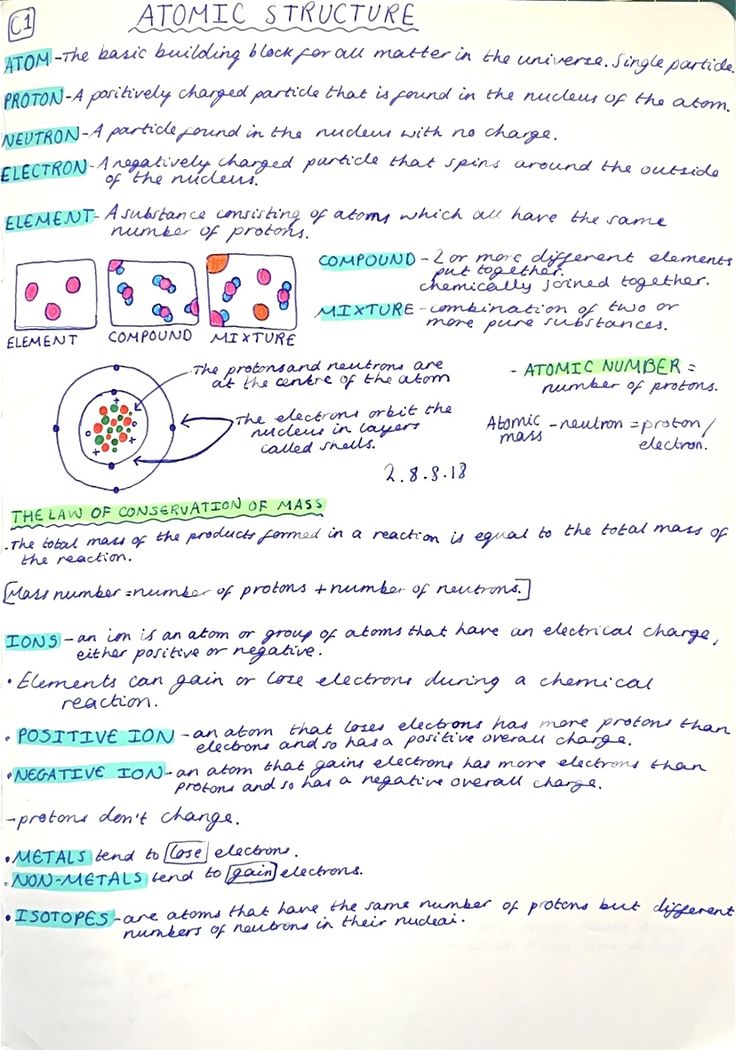 C1
ATOMIC STRUCTURE
ATOM - The basic building block for all matter in the universe. Single particle.
PROTON - A positively charged particle that is found in the nucleus of the atom.
NEUTRON - A particle found in the nucleus with no charge.
ELECTRON - A negatively charged particle that spins around the outside
of the nucleus.
ELEMENT - A substance consisting of atoms which all have the same
number of protons.
ELEMENT
COMPOUND
MIXTURE
COMPOUND - 2 or more different elements
put together.
chemically joined together.
MIXTURE - combination of two or
more pure substances.
The protons and neutrons are
at the centre of the atom
The electrons orbit the
nucleus in layers
called shells.
- ATOMIC NUMBER =
number of protons.
Atomic
mass - neutron = proton/
electron.
2.8.8.18
THE LAW OF CONSERVATION OF MASS
- The total mass of the products formed in a reaction is equal to the total mass of
the reaction.
[Mass number = number of protons + number of neutrons.]
IONS - an ion is an atom or group of atoms that have an electrical charge,
either positive or negative.
• Elements can gain or lose electrons during a chemical
reaction.
• POSITIVE ION - an atom that loses electrons has more protons than
electrons and so has a positive overall charge.
• NEGATIVE ION - an atom that gains electrons has more electrons than
protons and so has a negative overall charge.
- protons don't change.
• METALS tend to lose electrons.
• NON-METALS tend to gain electrons.
• ISOTOPES - are atoms that have the same number of protons but different
numbers of neutrons in their nucleai.